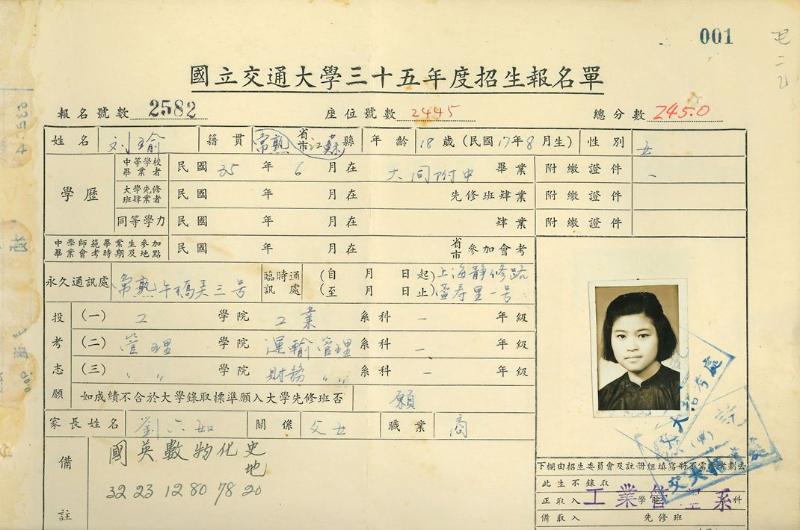 001
國立交通大學三十五年度招生報名單
報名號數 2582 座位號數 2445 總分數 245.0
姓名 刘瑜 籍貫 常熟 省市 江蘇 縣 年齡 18歲(民國17年8月生) 性別 女
學歷 中等學校畢業者 民國 35 年 6 月在 大同附中 畢業 附繳證件 一
大學先修班肄業者 民國 年 月在 先修班肄業 附繳證件
同等學力 民國 年 月在 肄業 附繳證件
中學師範畢業生參加畢業會考時期及地點 民國 年 月在 省市 參加會考
永久通訊處 常熟 三号 臨時通訊處 (自 月 日起)(至 月 日止) 上海静修路 里一号
投考志願 (一) 工 學院 工業 系科 一 年級
(二) 管理 學院 運輸管理 系科 一 年級
(三) 〃 〃 學院 財務 〃 〃 系科 一 年級
如成績不合於大學錄取標準願入大學先修班否 願
家長姓名 劉六如 關係 父女 職業 商
備註 國 英 數 物 化 史地
32 23 12 80 78 20
下欄由招生委員會及註冊組填寫
此生不錄取
正取入 工業管理系 學院 系科
備取入 先修班